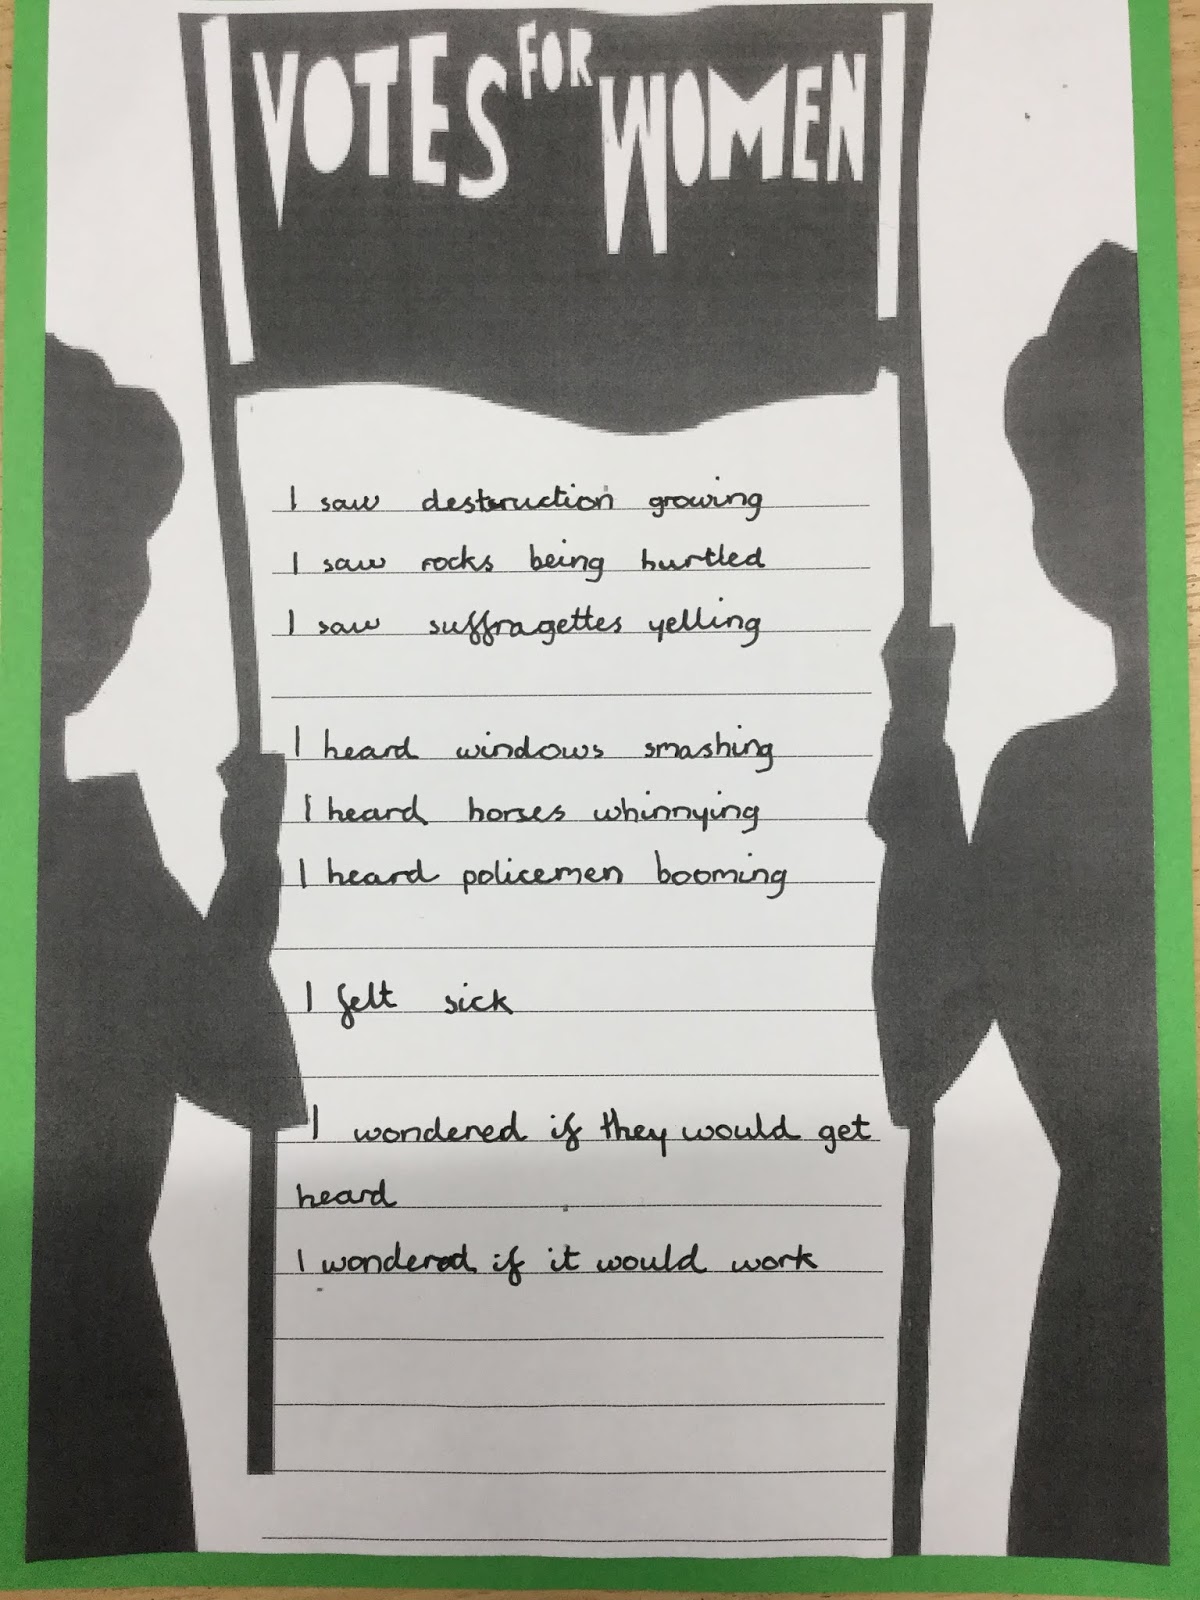 VOTES FOR WOMEN
I saw destruction growing
I saw rocks being hurtled
I saw suffragettes yelling
I heard windows smashing
I heard horses whinnying
I heard policemen booming
I felt sick
I wondered if they would get
heard
I wondered if it would work